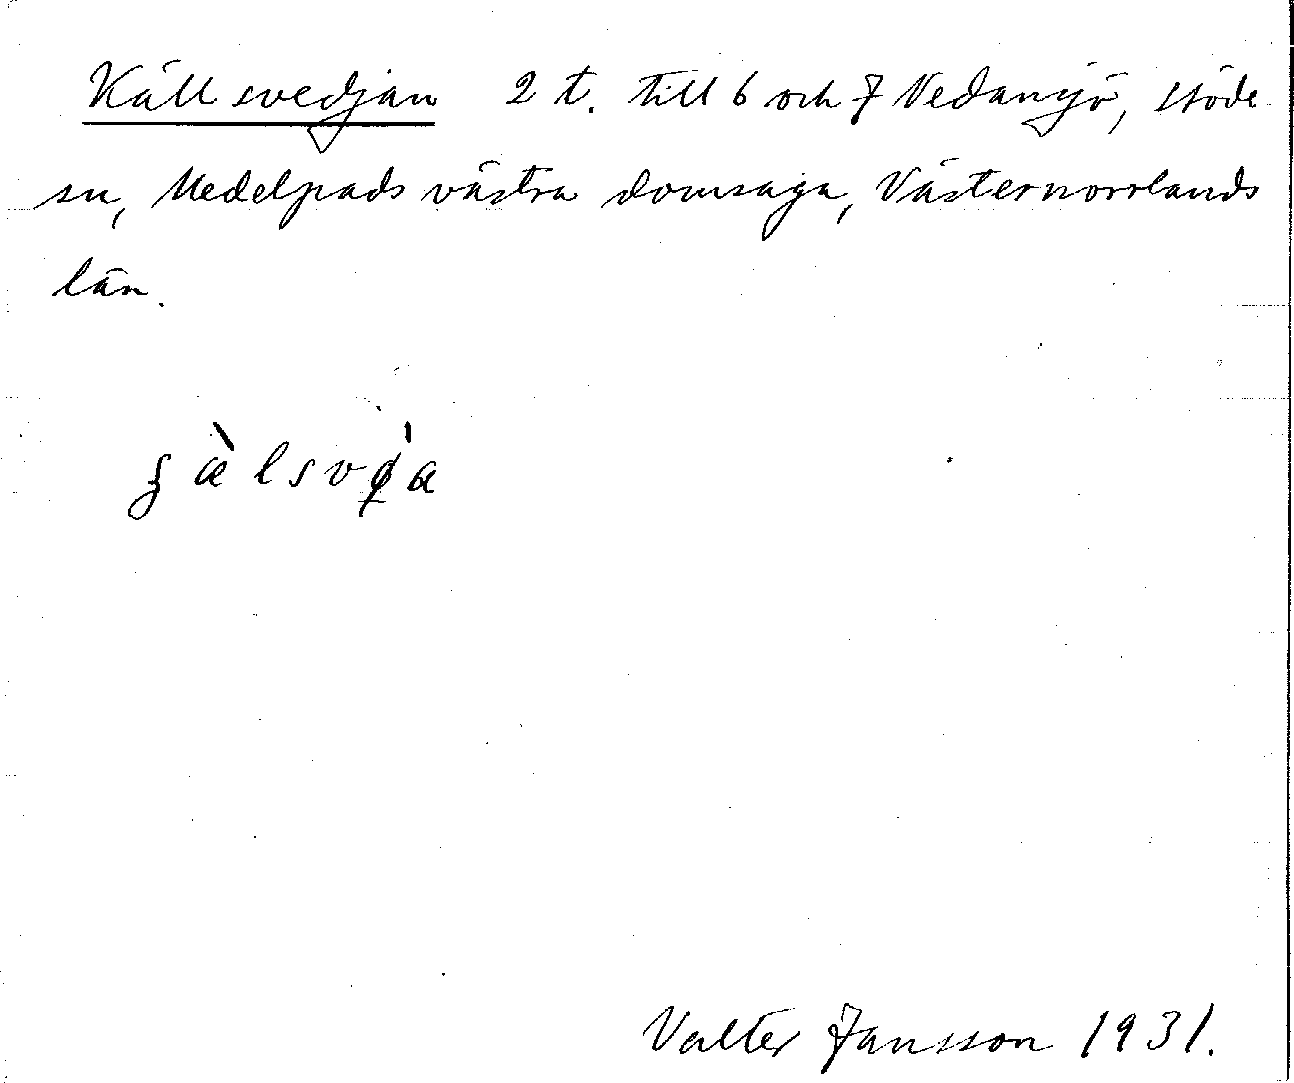 Källsvedjan 2 t. till 6 och 7 Nedansjö, Stöde
sn, Medelpads västra domsaga, Västernorrlands
län.
Valter Jansson 1931.